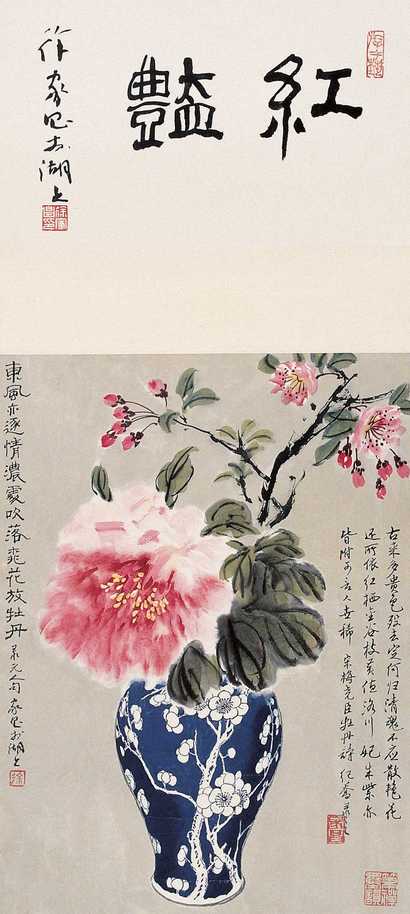 紅豔
徐家昌於湖上
東風亦逐情濃處吹落桃花放牡丹 录元人句 家昌於湖上
古来多貴色殁去定何归清魂不应散艳花
还所依红栖金谷妓黄值洛川妃朱紫亦
皆附可言人世稀 宋梅尧臣牡丹詩 纪乔录
徐